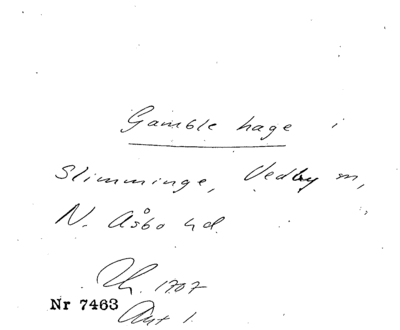 Gamble hage i
Slimminge, Vedby sn,
N. Åsbo hd.
Th. 1707
Nr 7463
Akt 1.